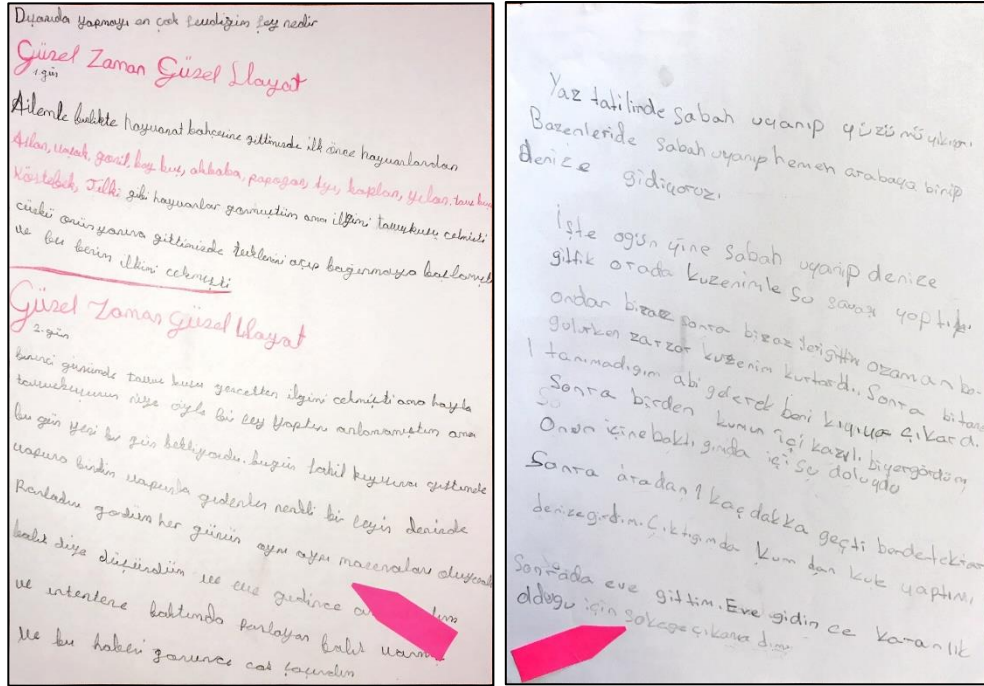 Dünyada yapmayı en çok sevdiğim şey nedir
Güzel Zaman Güzel Hayat
1.gün
Ailemle birlikte hayvanat bahçesine gittimizde ilk önce hayvanlardan
Aslan, uşak, goril, baykuş, akbaba, papağan, ayı, kaplan, yılan, tavus kuşu
Köstebek, Tilki gibi hayvanlar görmüştüm ama ilgimi tavuskuşu çekmişti
çünkü onun yanına gittimizde tüylerini açıp bağırmaya başlamıştı
ve bu benim ilkimi çekmişti
Güzel Zaman Güzel Hayat
2.gün
birinci günümde tavus kuşu gerçekten ilgimi çekmişti ama hayla
tavuskuşunun niye öyle bir şey yaptını anlamamıştım ama
bu gün yeni bir gün bekliyordu. bugün tahil köyüne gittimde
vapura bindim vapurla giderken renkli bir şeyin denizde
Parladını gördüm her günün aynı aynı maceraları oluyordu
balık diye düşündüm ve eve gidince
ve internete baktımda parlayan balık varmış
Ve bu haberi görünce çok şaşırdım
Yaz tatilinde sabah uyanıp yüzümü yıkıyorum.
Bazenleride sabah uyanıp hemen arabaya binip
denize gidiyoruz.
İşte ogün yine sabah uyanıp denize
gittik orada kuzenimle su savaşı yaptık.
ondan biraz sonra biraz ilerigittim ozaman bo-
ğulurken zarzor kuzenim kurtardı. Sonra bitane
1 tanımadığım abi gelerek beni kıyıya çıkardı.
Sonra birden kumun içi kazılı biyergördüm
Onun içine baktığımda içi su doluydu
Sonra aradan 1 kaç dakka geçti bendetekrar
denizegirdim. Çıktığımda kumdan kule yaptım.
Sonrada eve gittim. Eve gidince karanlık
olduğu için sokağa çıkamadım.